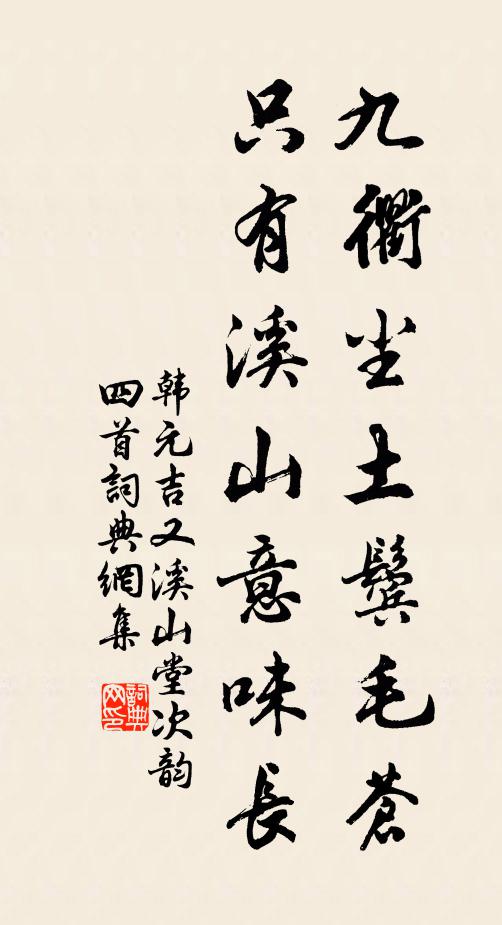 九衢尘土鬓毛苍
只有溪山意味長
韩元吉又溪山堂次韵
四首詞典網集
詞典网印